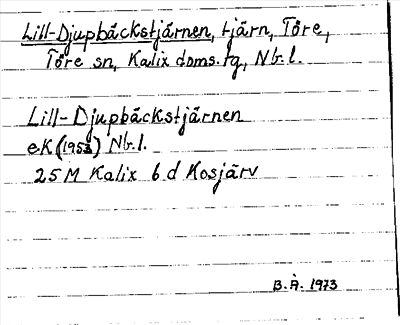 Lill-Djupbäckstjärnen, tjärn, Töre,
Töre sn, Kalix doms.tg, Nb.l.
Lill-Djupbäckstjärnen
eK (1953) Nb.l.
25 M Kalix 6 d Kosjärv
B.Å. 1973